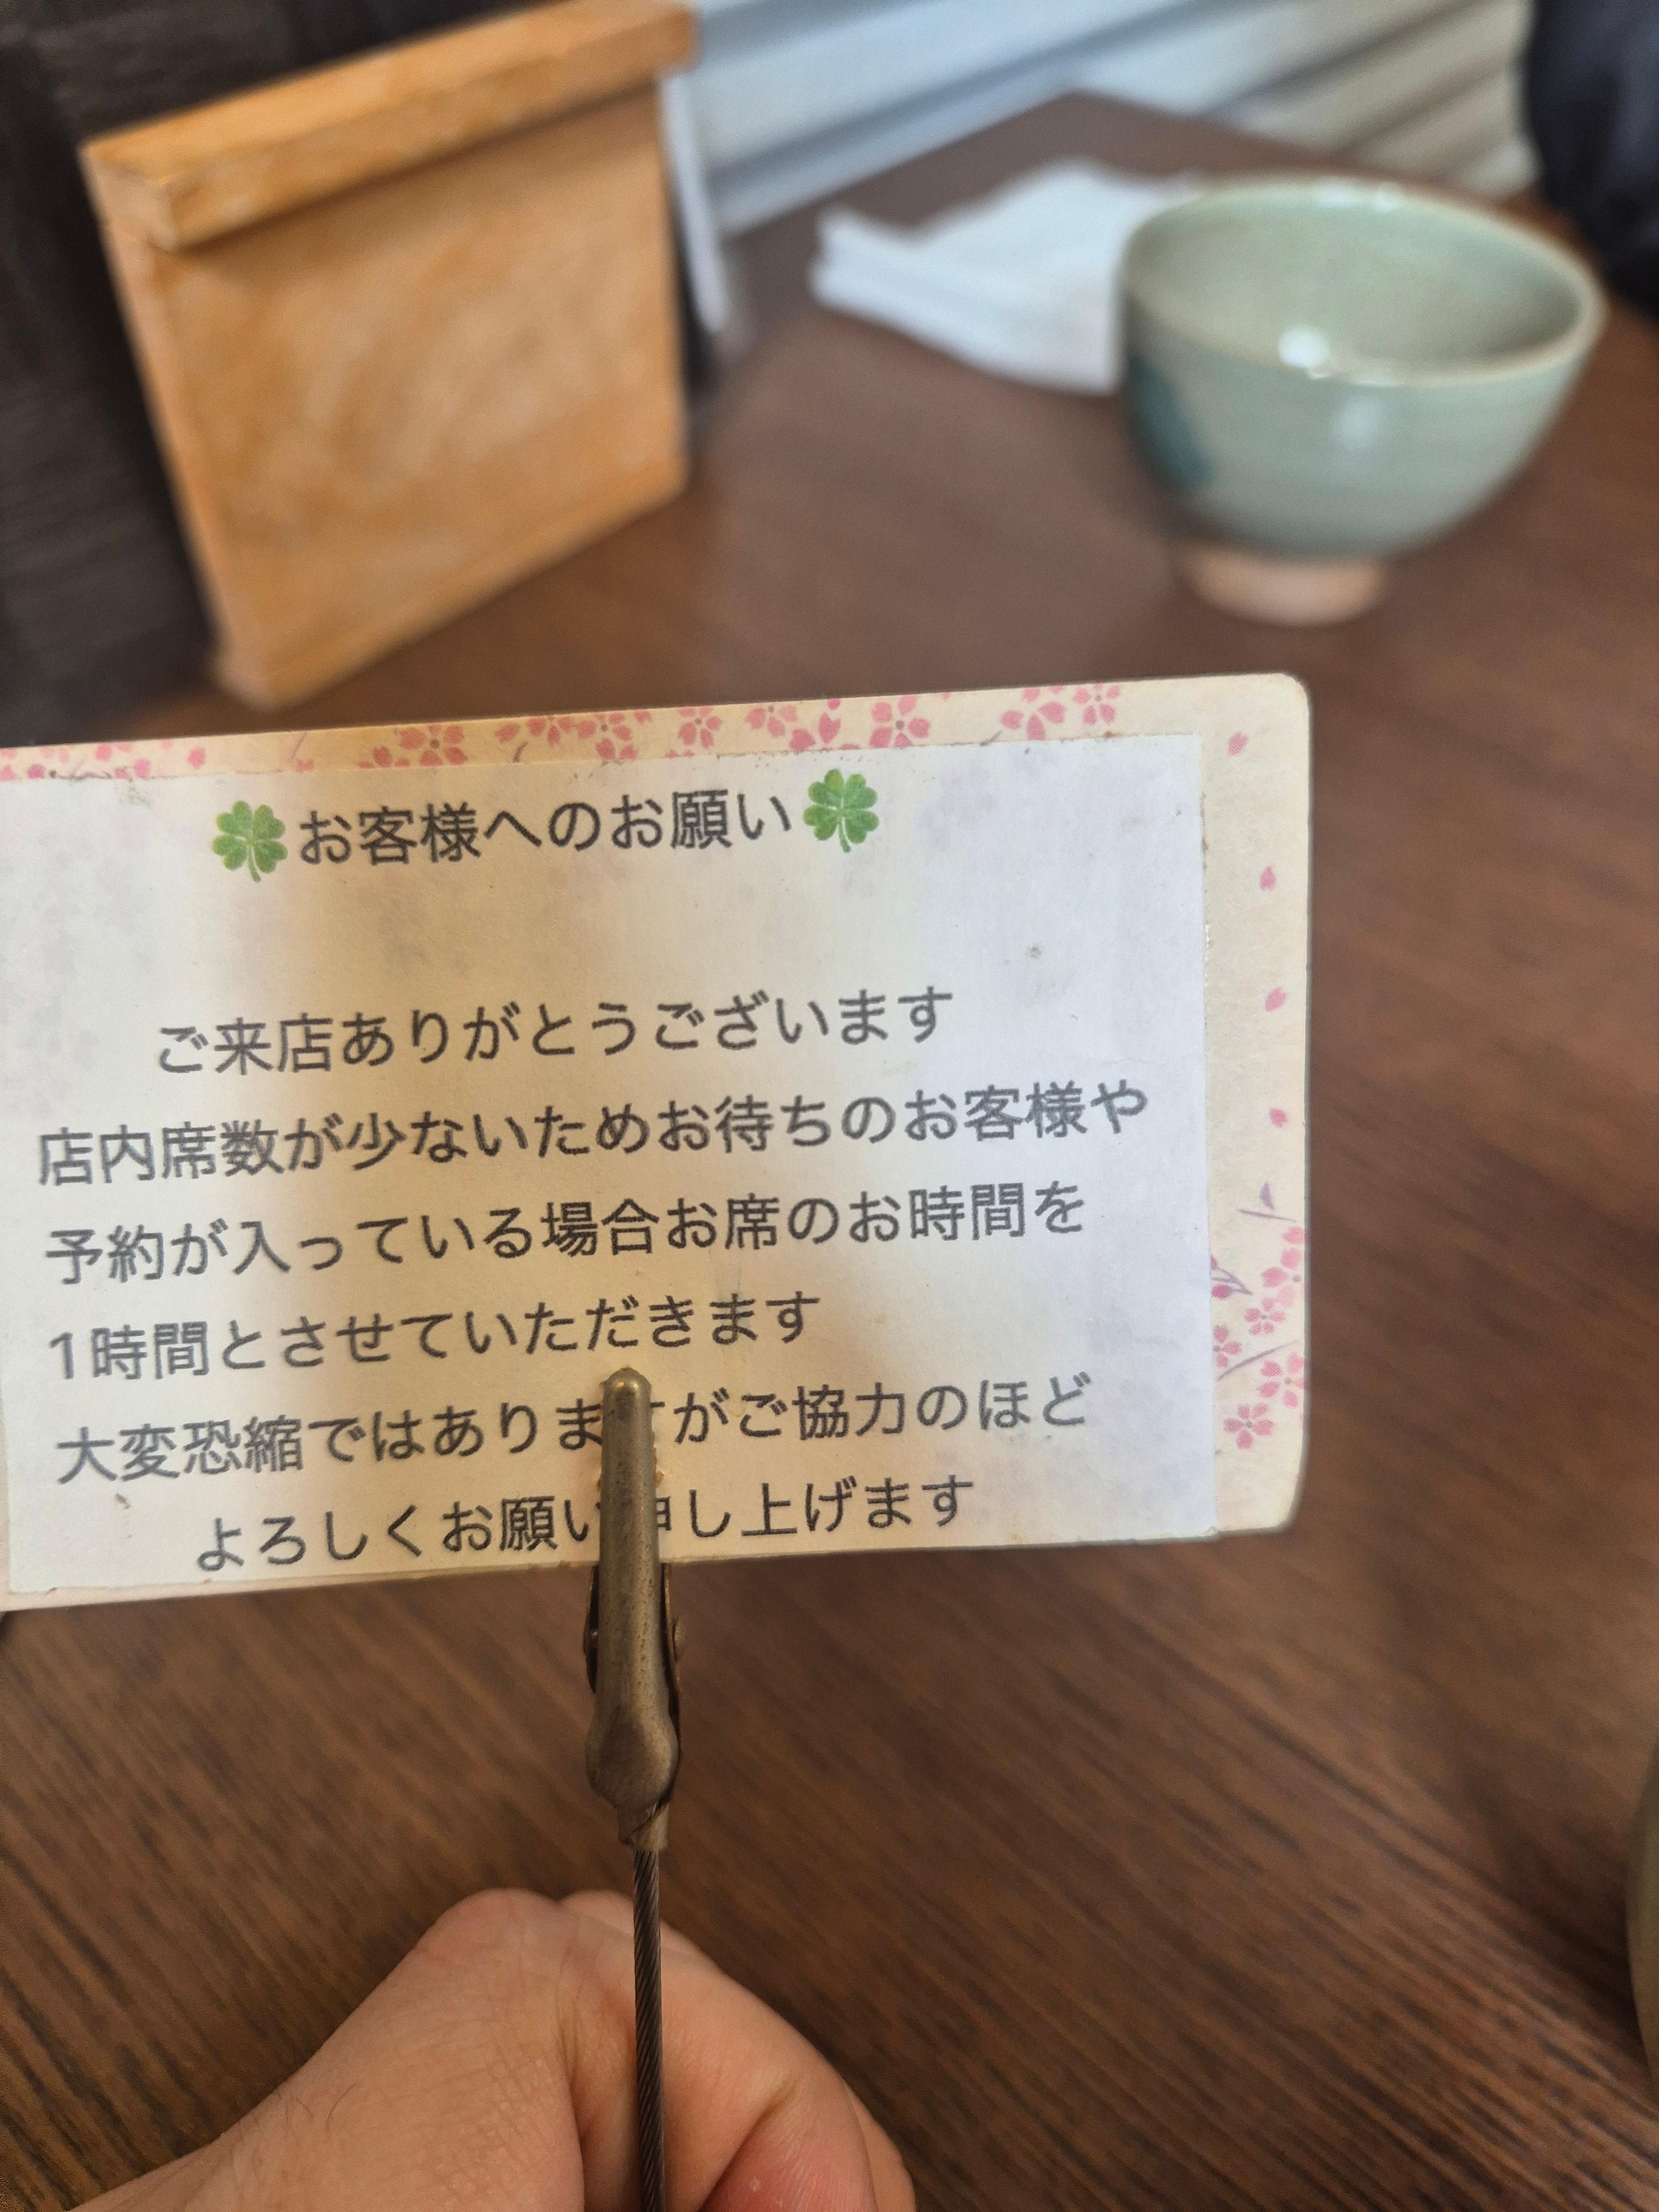 🍀お客様へのお願い🍀
ご来店ありがとうございます
店内席数が少ないためお待ちのお客様や
予約が入っている場合お席のお時間を
1時間とさせていただきます
大変恐縮ではありますがご協力のほど
よろしくお願い申し上げます